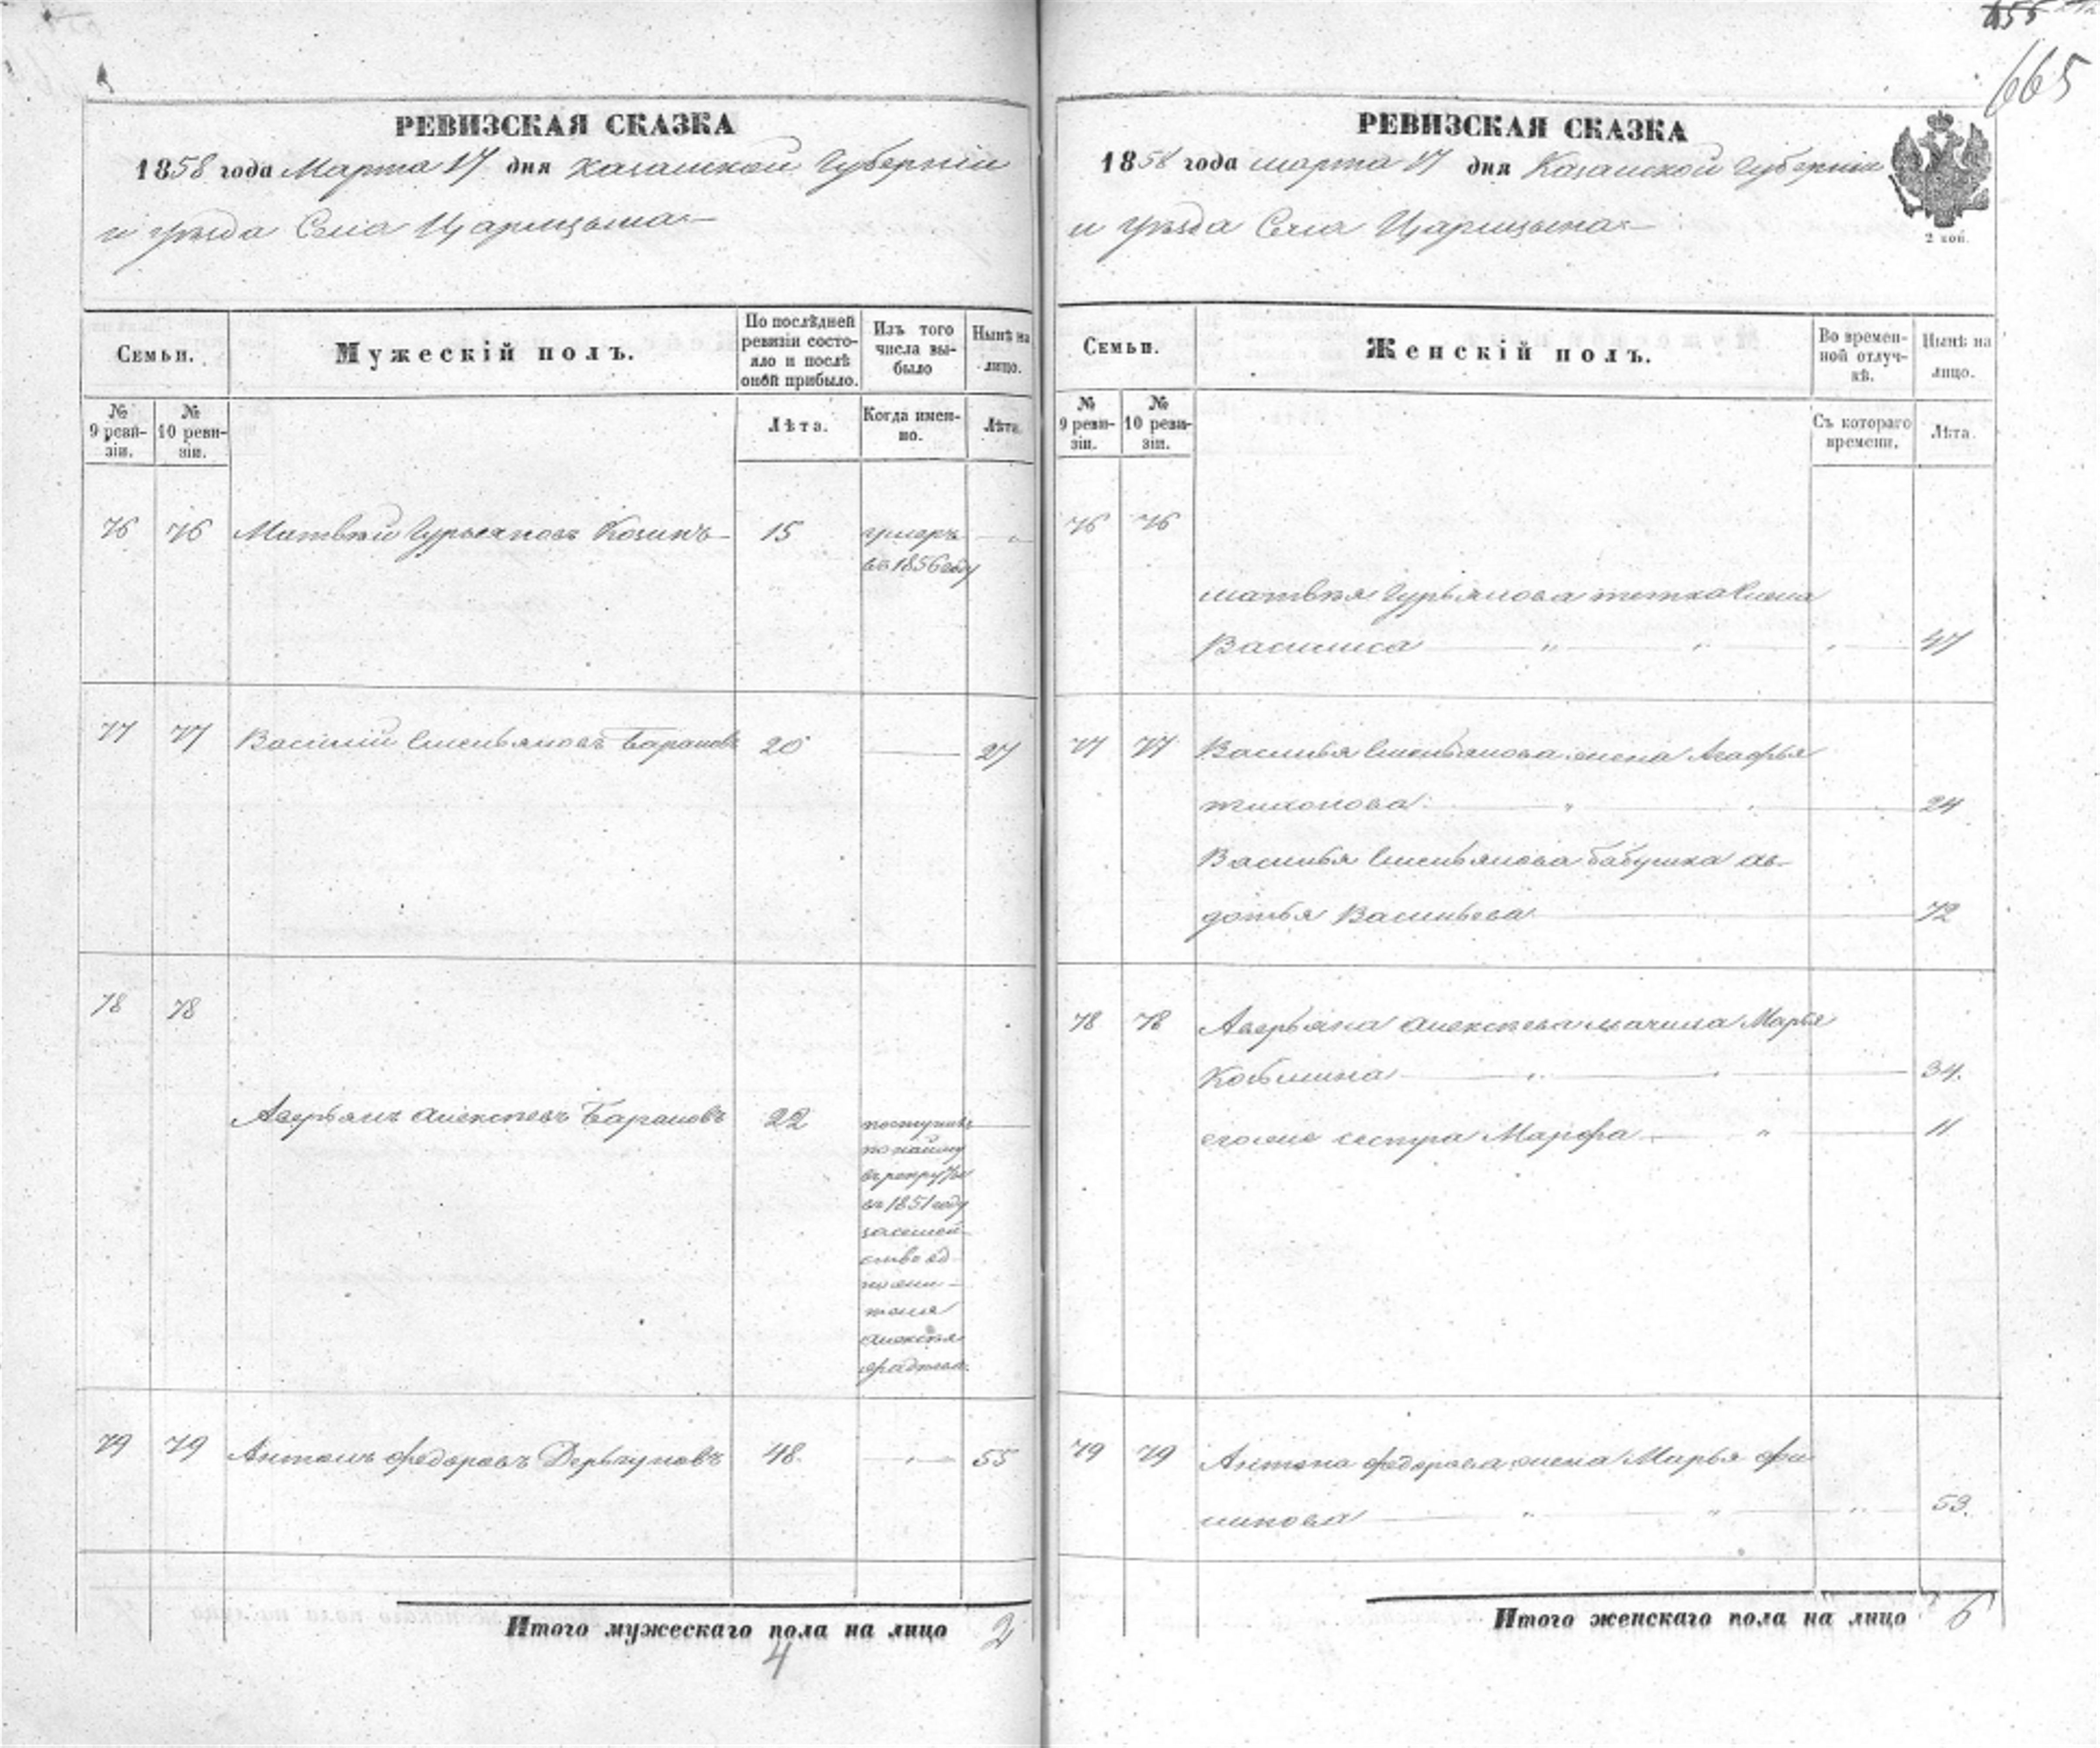 655
665
РЕВИЗСКАЯ СКАЗКА
1858 года Марта 17 дня Казанской Губерніи
и уѣзда Села Царицына
Семьи.
Мужескій полъ.
По послѣдней ревизіи состояло и послѣ оной прибыло.
Изъ того числа выбыло
Нынѣ на лицо.
№ 9 ревизіи.
№ 10 ревизіи.
Лѣта.
Когда именно.
Лѣта.
76 76 Матвѣй Гурьяновъ Козинъ 15 умеръ
въ 1856 году
77 77 Василій Емельяновъ Барановъ 20 27
78 78
Аверьянъ Алексѣевъ Барановъ 22 поступилъ
по найму
въ рекруты
въ 1851 году
за семей
ство
Алексѣя
79 79 Антонъ Федоровъ 48. 55
Итого мужескаго пола на лицо 2
4
РЕВИЗСКАЯ СКАЗКА
1858 года марта 17 дня Казанской Губерніи
и уѣзда Села Царицына
2 коп.
Семьи.
Женскій полъ.
Во временной отлучкѣ.
Нынѣ на лицо.
№ 9 ревизіи.
№ 10 ревизіи.
Съ котораго времени.
Лѣта.
76 76
Матвѣя Гурьянова тетка
Василиса 47
77 77 Василья Емельянова жена Агафья
Тихонова 24
Василья Емельянова бабушка Ав-
дотья Васильева 72
78 78 Аверьяна Алексѣева мачиха Марья
Козьмина 34.
его же сестра Марфа 11
79 79 Антона Федорова жена Марья Фи
липова 53.
Итого женскаго пола на лицо 6